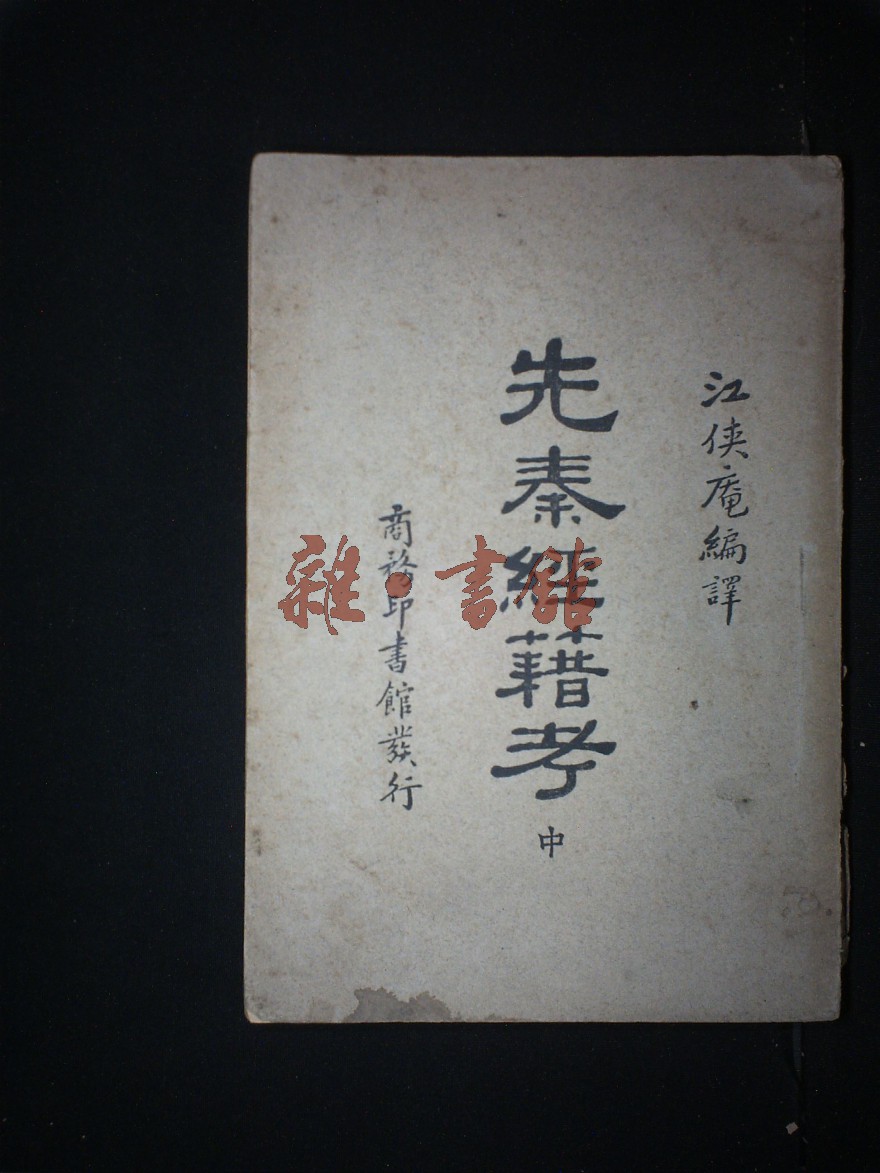 江侠庵編譯
先秦經籍考
中
商務印書館發行
雜·書館